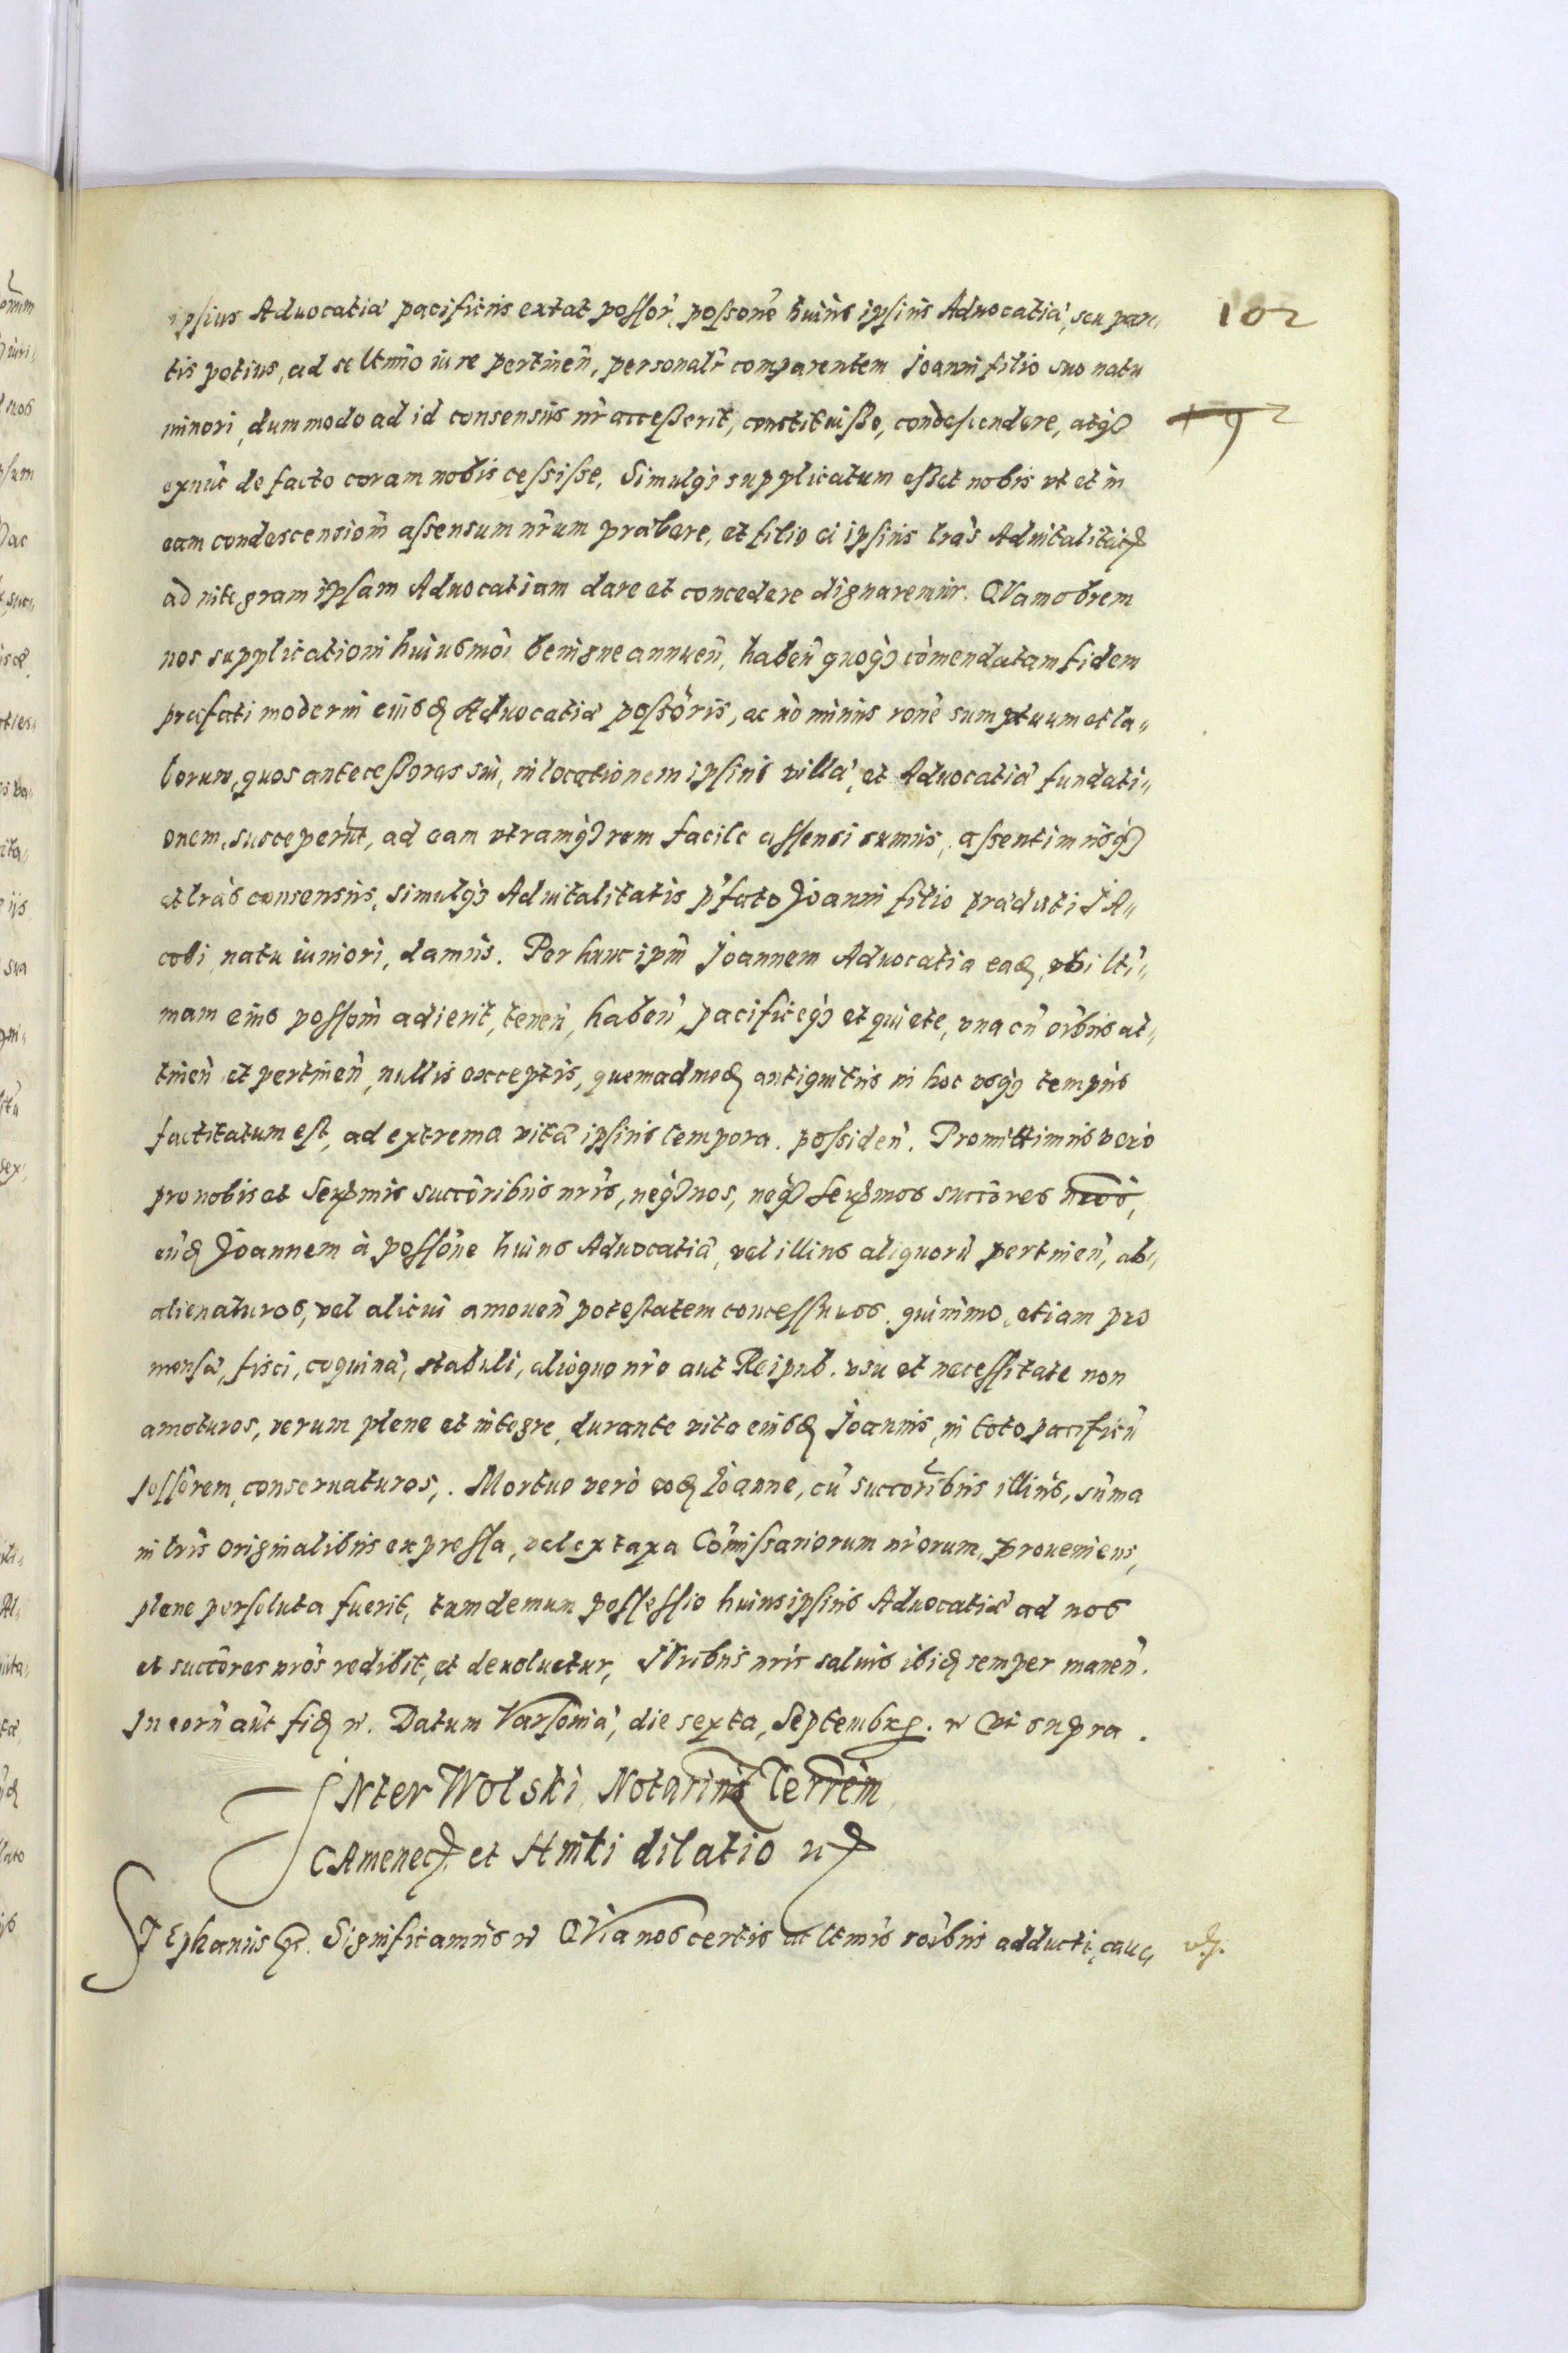 ipsius Aduocatiæ pacificus extat possor̃, possonẽ huius ipsius Aduocatiæ, seu par„ 102
tis potius, ad se ltimo iure pertineñ, personalr̃ comparentem Joanni filio suo natu
minori, dummodo ad id consensus nr̃ accesserit, constituisse, condescendere, atq3
exnũc de facto coram nobis cessisse, Simulq3 supplicatum esset nobis vt et in
eam condescensionẽ assensum nr̃um præbere, et filio ei ipsius lrãs Aduitalitatis
ad integram ipsam Aduocatiam dare et concedere dignaremur. QVamobrem
nos supplicationi huiusmõi benigne annueñ, habeñ quoq3 cõmendatam fidem
præfati moderni eiusd Aduocatiæ possõris, ac nõ minus ronẽ sumptuum et la„
borum, quos antecessores sui, in locationem ipsius villæ, et Aduocatiæ fundati„
onem, susceperũt, ad eam vtramq3 rem facile assensi sumus, assentimusq3
et lrãs consensus, simulq3 Aduitalitatis p̃fato Joanni filio prædicti JA„
cobi, natu iuniori, damus. Per hunc ipm̃ Joannem Aduocatia ead, vbi lti„
mam eius possonẽ adierit, teneñ, habeñ, pacificeq3 et quiete, vna cũ oĩbus at„
tineñ et pertineñ, nullis exceptis, quemadmod antiquitus in hoc vsq3 tempus
factitatum est, ad extrema vitæ ipsius tempora, possideñ. Promittimus verò
pro nobis et Serx̃mis succõribus nr̃is, neq3 nos, neq3 Serx̃mos succõres nrõs,
eũd Joannem à possõne huius Aduocatiæ, vel illius aliquorũ pertineñ, ab„
alienaturos, vel alicui amoueñ potestatem concessuros, quinimo, etiam pro
mensæ, fisci, coquinæ, stabuli, alioquo nr̃o aut Reipub. vsu et necessitate non
amoturos, verum plene et integre, durante vita eiusd Joannis, in toto pacificũ
possõrem, conseruaturos,. Mortuo verò eod Ioanne, cũ succoribus illius, sũma
in lrĩs originalibus expressa, vel ex taxa Cõmissariorum nr̃orum, proueniens,
plene persoluta fuerit, tum demum possessio huius ipsius Aduocatiæ ad nos
et succõres nrõs redibit, et deuoluetur, JUribus nr̃is saluis ibid semper maneñ.
In eorũ aũt fid &c. Datum Varsouiæ, die sexta, Septembr. &c Vt supra.
JNter Wolski Notarium Terrem
CAmeneć et Hinki dilatio
STephanus &c. Significamus &c QVia nos certis et ltmis rõibus adducti, cau„